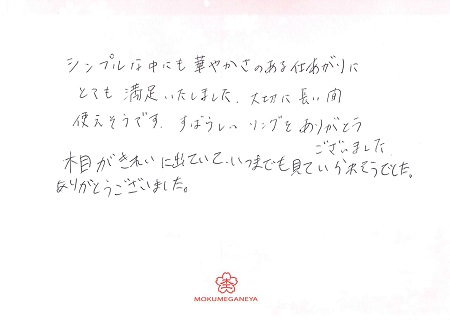 シンプルな中にも華やかさのある仕あがりに
とても満足いたしました。大切に長い間
使えそうです。すばらしいリングをありがとう
ございました
木目がきれいに出ていて、いつまでも見ていられそうでした。
ありがとうございました。
MOKUMEGANEYA